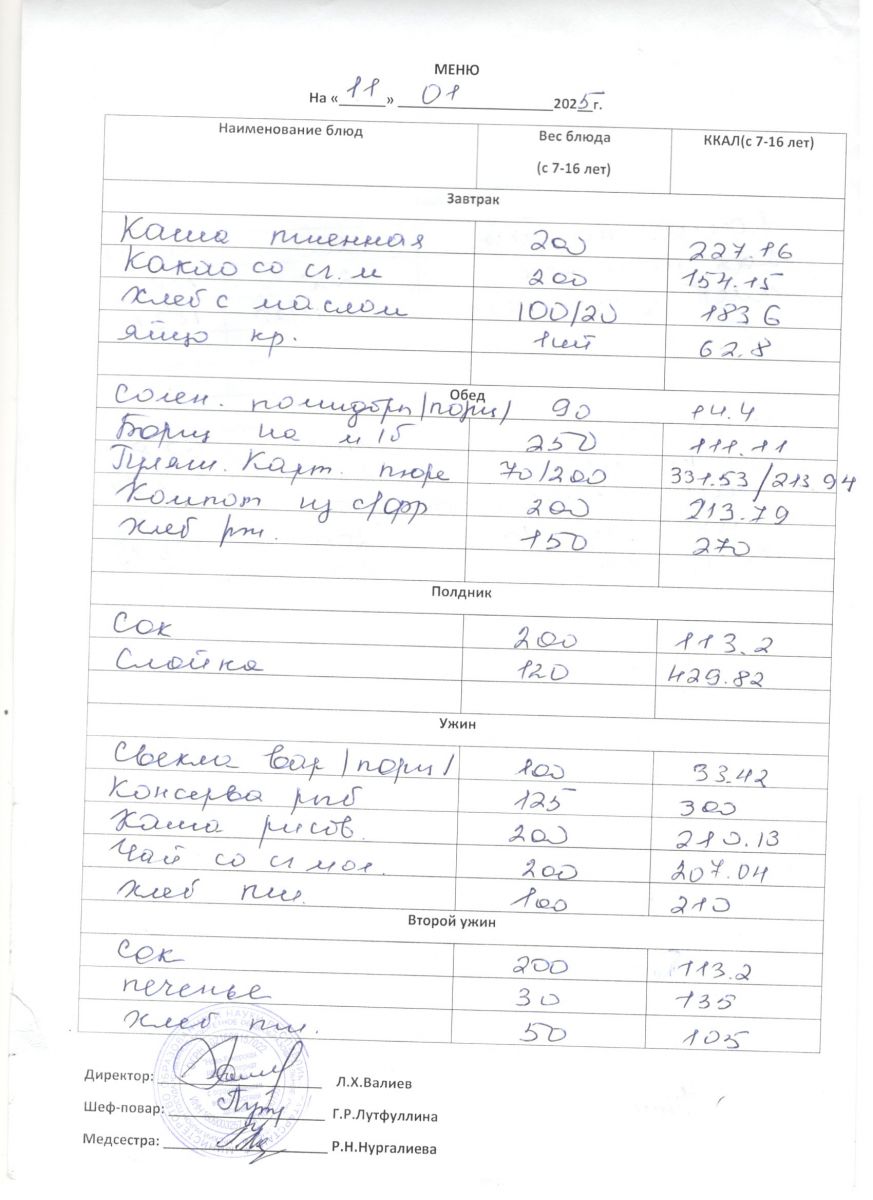 МЕНЮ
На «11» 01 2025 г.
Наименование блюд Вес блюда (с 7-16 лет) ККАЛ(с 7-16 лет)
Завтрак
Каша пшенная 200 227.16
Какао со сг.м 200 154.15
Хлеб с маслом 100/20 183 6
яйцо кр. 1шт 62.8
Обед
Солен. помидоры /порц/ 90 14.4
Борщ на м/б 250 111.11
Гуляш. Карт. пюре 70/200 331.53/213 94
Компот из с/фр 200 213.79
Хлеб рж. 150 270
Полдник
Сок 200 113.2
Слойка 120 429.82
Ужин
Свекла вар /порц/ 100 33.42
Консерва рыб 125 300
Каша рисов. 200 210.13
Чай со сг мол. 200 207.04
Хлеб пш. 100 210
Второй ужин
Сок 200 113.2
печенье 30 135
Хлеб пш. 50 105
Директор: Л.Х.Валиев
Шеф-повар: Г.Р.Лутфуллина
Медсестра: Р.Н.Нургалиева